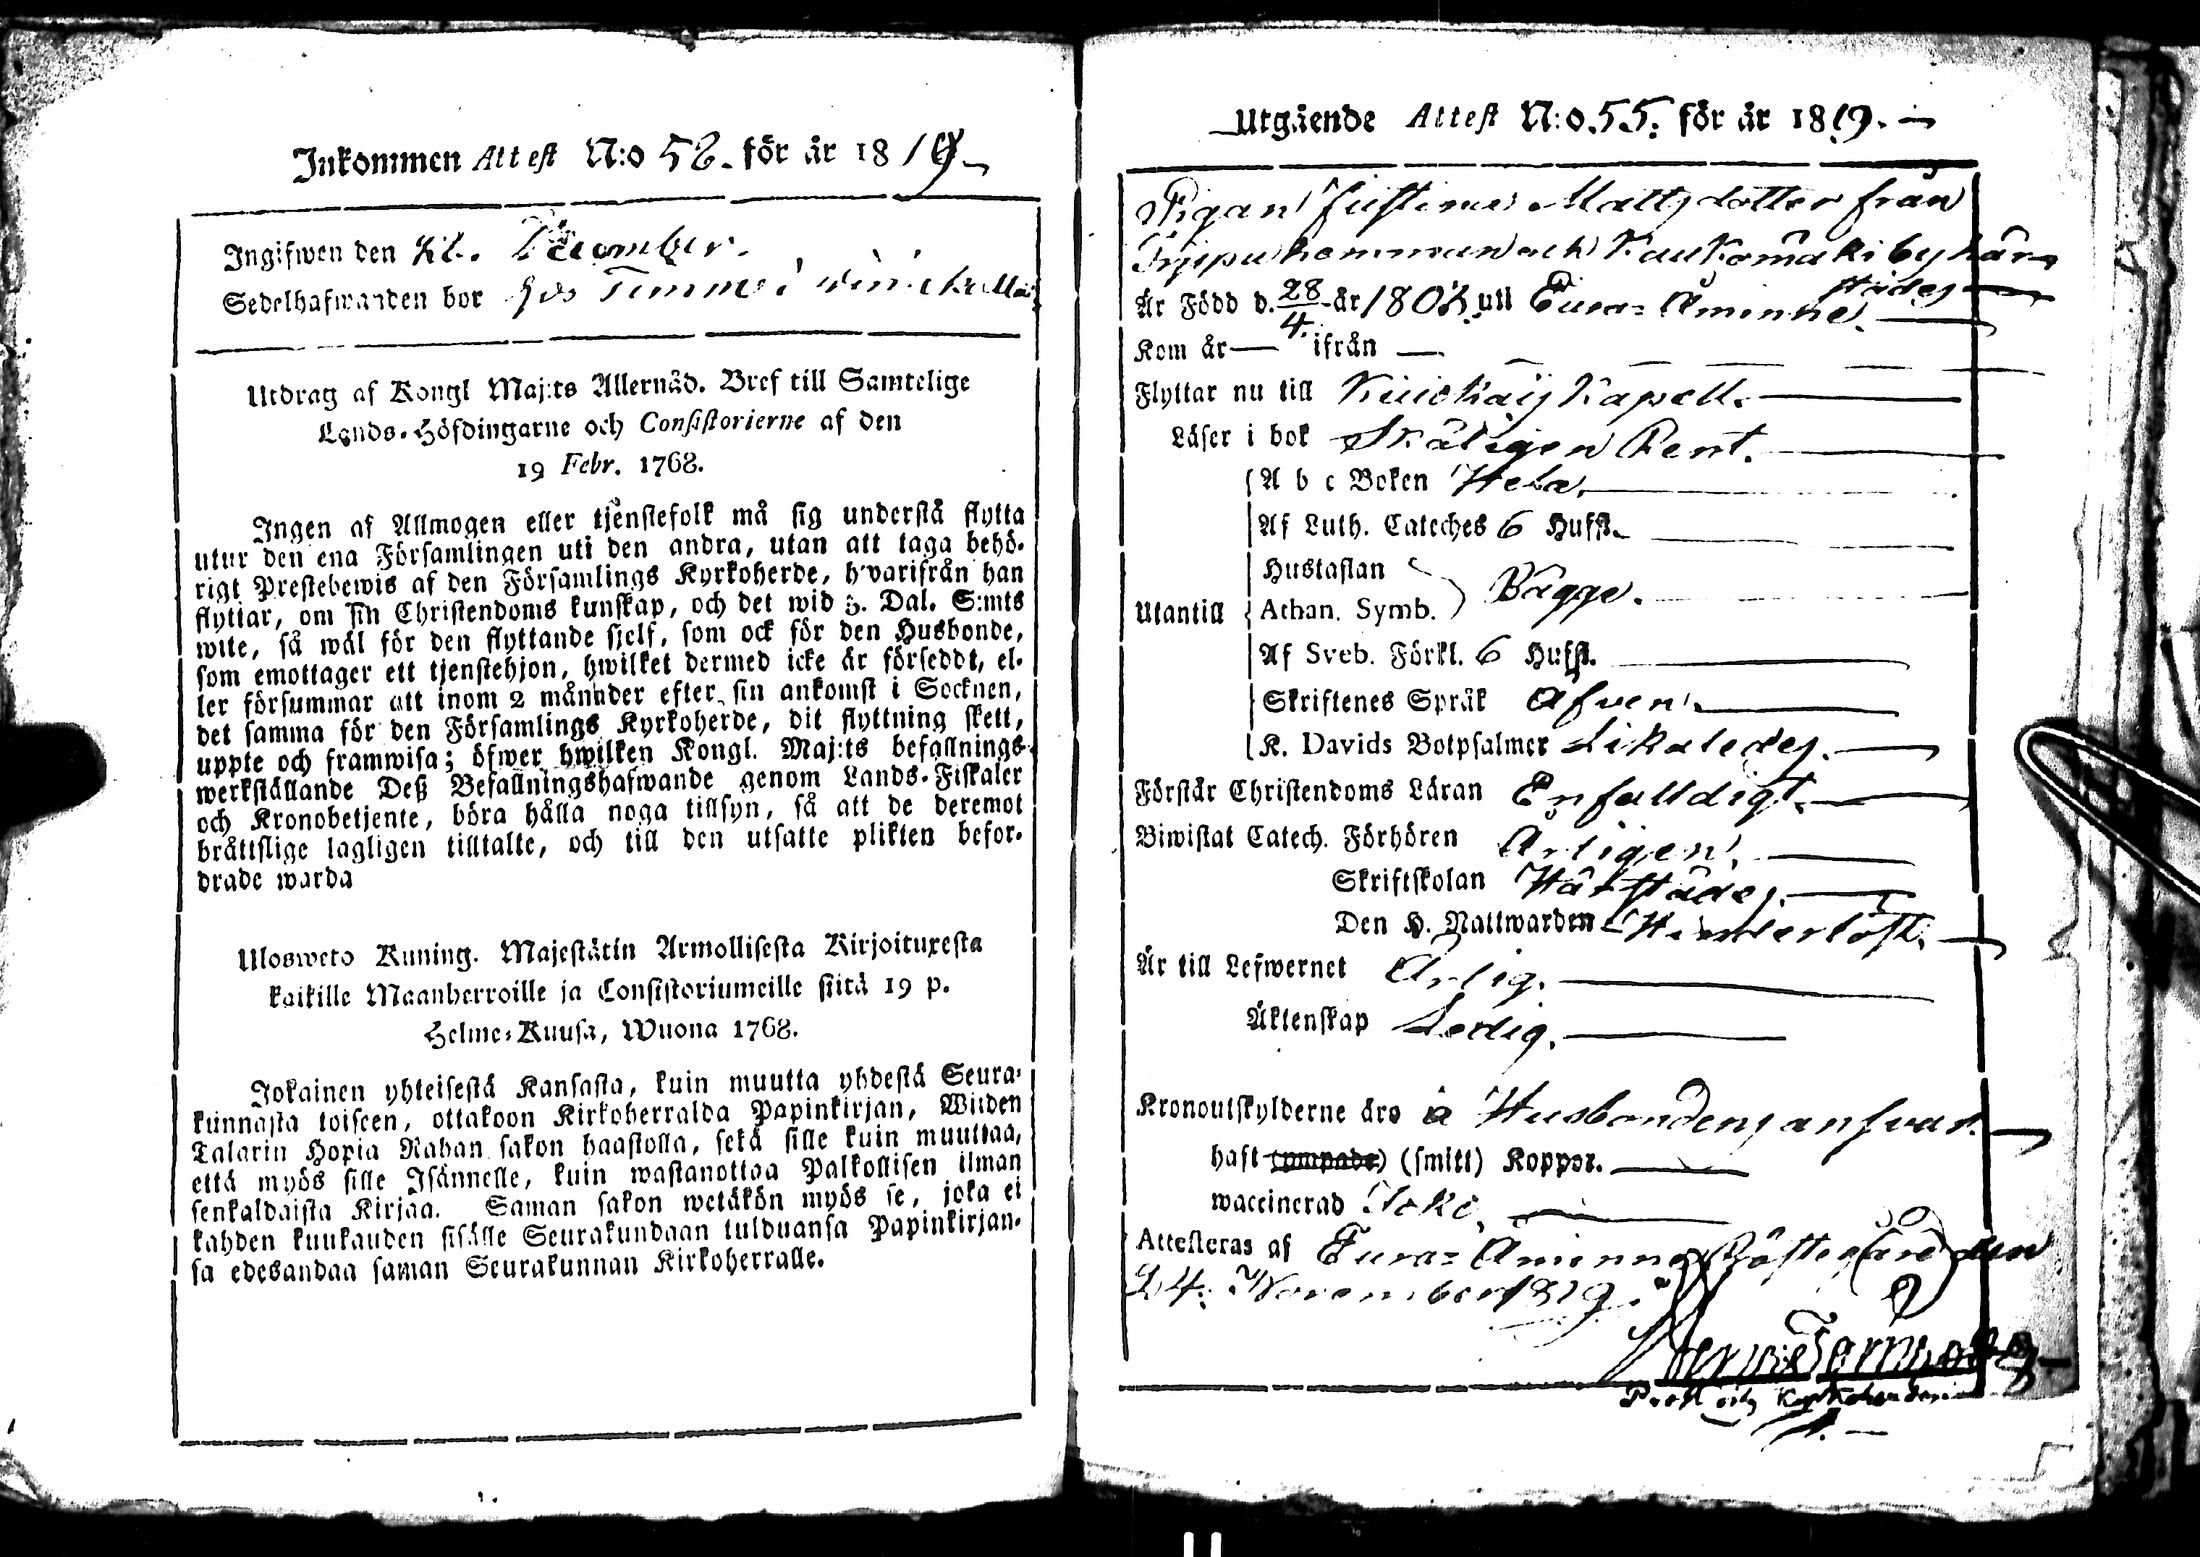 Inkommen Attest N:o 58. för år 1819
Ingifwen den December.
Sedelhafwanden bor hos
Utdrag af Kongl Maj:ts Allernåd. Bref till Samtelige
Lands-Höfdingarne och Consistorierne af den
19 Febr. 1768.
Ingen af Allmogen eller tjenstefolk må sig understå flytta
utur den ena Församlingen uti den andra, utan att taga behö-
rigt Prestebewis af den Församlings Kyrkoherde, hvarifrån han
flyttar, om sin Christendoms kunskap, och det wid 5. Dal. S:mts
wite, så wäl för den flyttande sjelf, som ock för den Husbonde,
som emottager ett tjenstehjon, hwilket dermed icke är förseddt, el-
ler försummar att inom 2 månader efter sin ankomst i Socknen,
det samma för den Församlings Kyrkoherde, dit flyttning skett,
uppte och framwisa; öfwer hwilken Kongl. Maj:ts befallnings-
werkställande Deß Befallningshafwande genom Lands-Fiskaler
och Kronobetjente, böra hålla noga tillsyn, så att de deremot
bråttslige lagligen tilltalte, och till den utsatte plikten befor-
drade warda
Ulosweto Kuning. Majestätin Armollisesta Kirjoituxesta
kaikille Maanherroille ja Consistoriumeille siitä 19 p.
Helme-Kuusa, Wuona 1768.
Jokainen yhteisestä Kansasta, kuin muutta yhdestä Seura-
kunnasta toiseen, ottakoon Kirkoherralda Papinkirjan, Wiiden
Talarin Hopia Rahan sakon haastolla, sekä sille kuin muuttaa,
että myös sille Isännelle, kuin wastanottaa Palkollisen ilman
senkaldaista Kirjaa. Saman sakon wetäkön myös se, joka ei
kahden kuukauden sisälle Seurakundaan tulduansa Papinkirjan-
sa edesandaa saman Seurakunnan Kirkoherralle.
Utgående Attest N:o. 55. för år 1819.
Pigan Justina Mattsdotter från
och Kaukomäki by här-
städes
År Född d. 28/4 år 180 uti Eura-Åminne.
Kom år — ifrån —
Flyttar nu till Kiukais Kapell.
Läser i bok Skäligen Rent.
A b c Boken Hela.
Af Luth. Cateches 6 Hufst.
Hustaflan
Athan. Symb. Bägge.
Utantill
Af Sveb. Förkl. 6 Hufst.
Skriftenes Språk Äfven.
K. Davids Botpsalmer Likaledes.
Förstår Christendoms Läran Enfalldigt.
Biwistat Catech. Förhören Årligen.
Skriftskolan Härstädes.
Den H. Nattwarden
Är till Lefwernet Ärlig.
Äktenskap Ledig.
Kronoutskylderne äro å Husbondens ansvar.
haft (ympade) (smitt) Koppor.
waccinerad Icke.
Attesteras af Eura-Åminne den
24. November 1819.
Prost och Kyrkoherde.